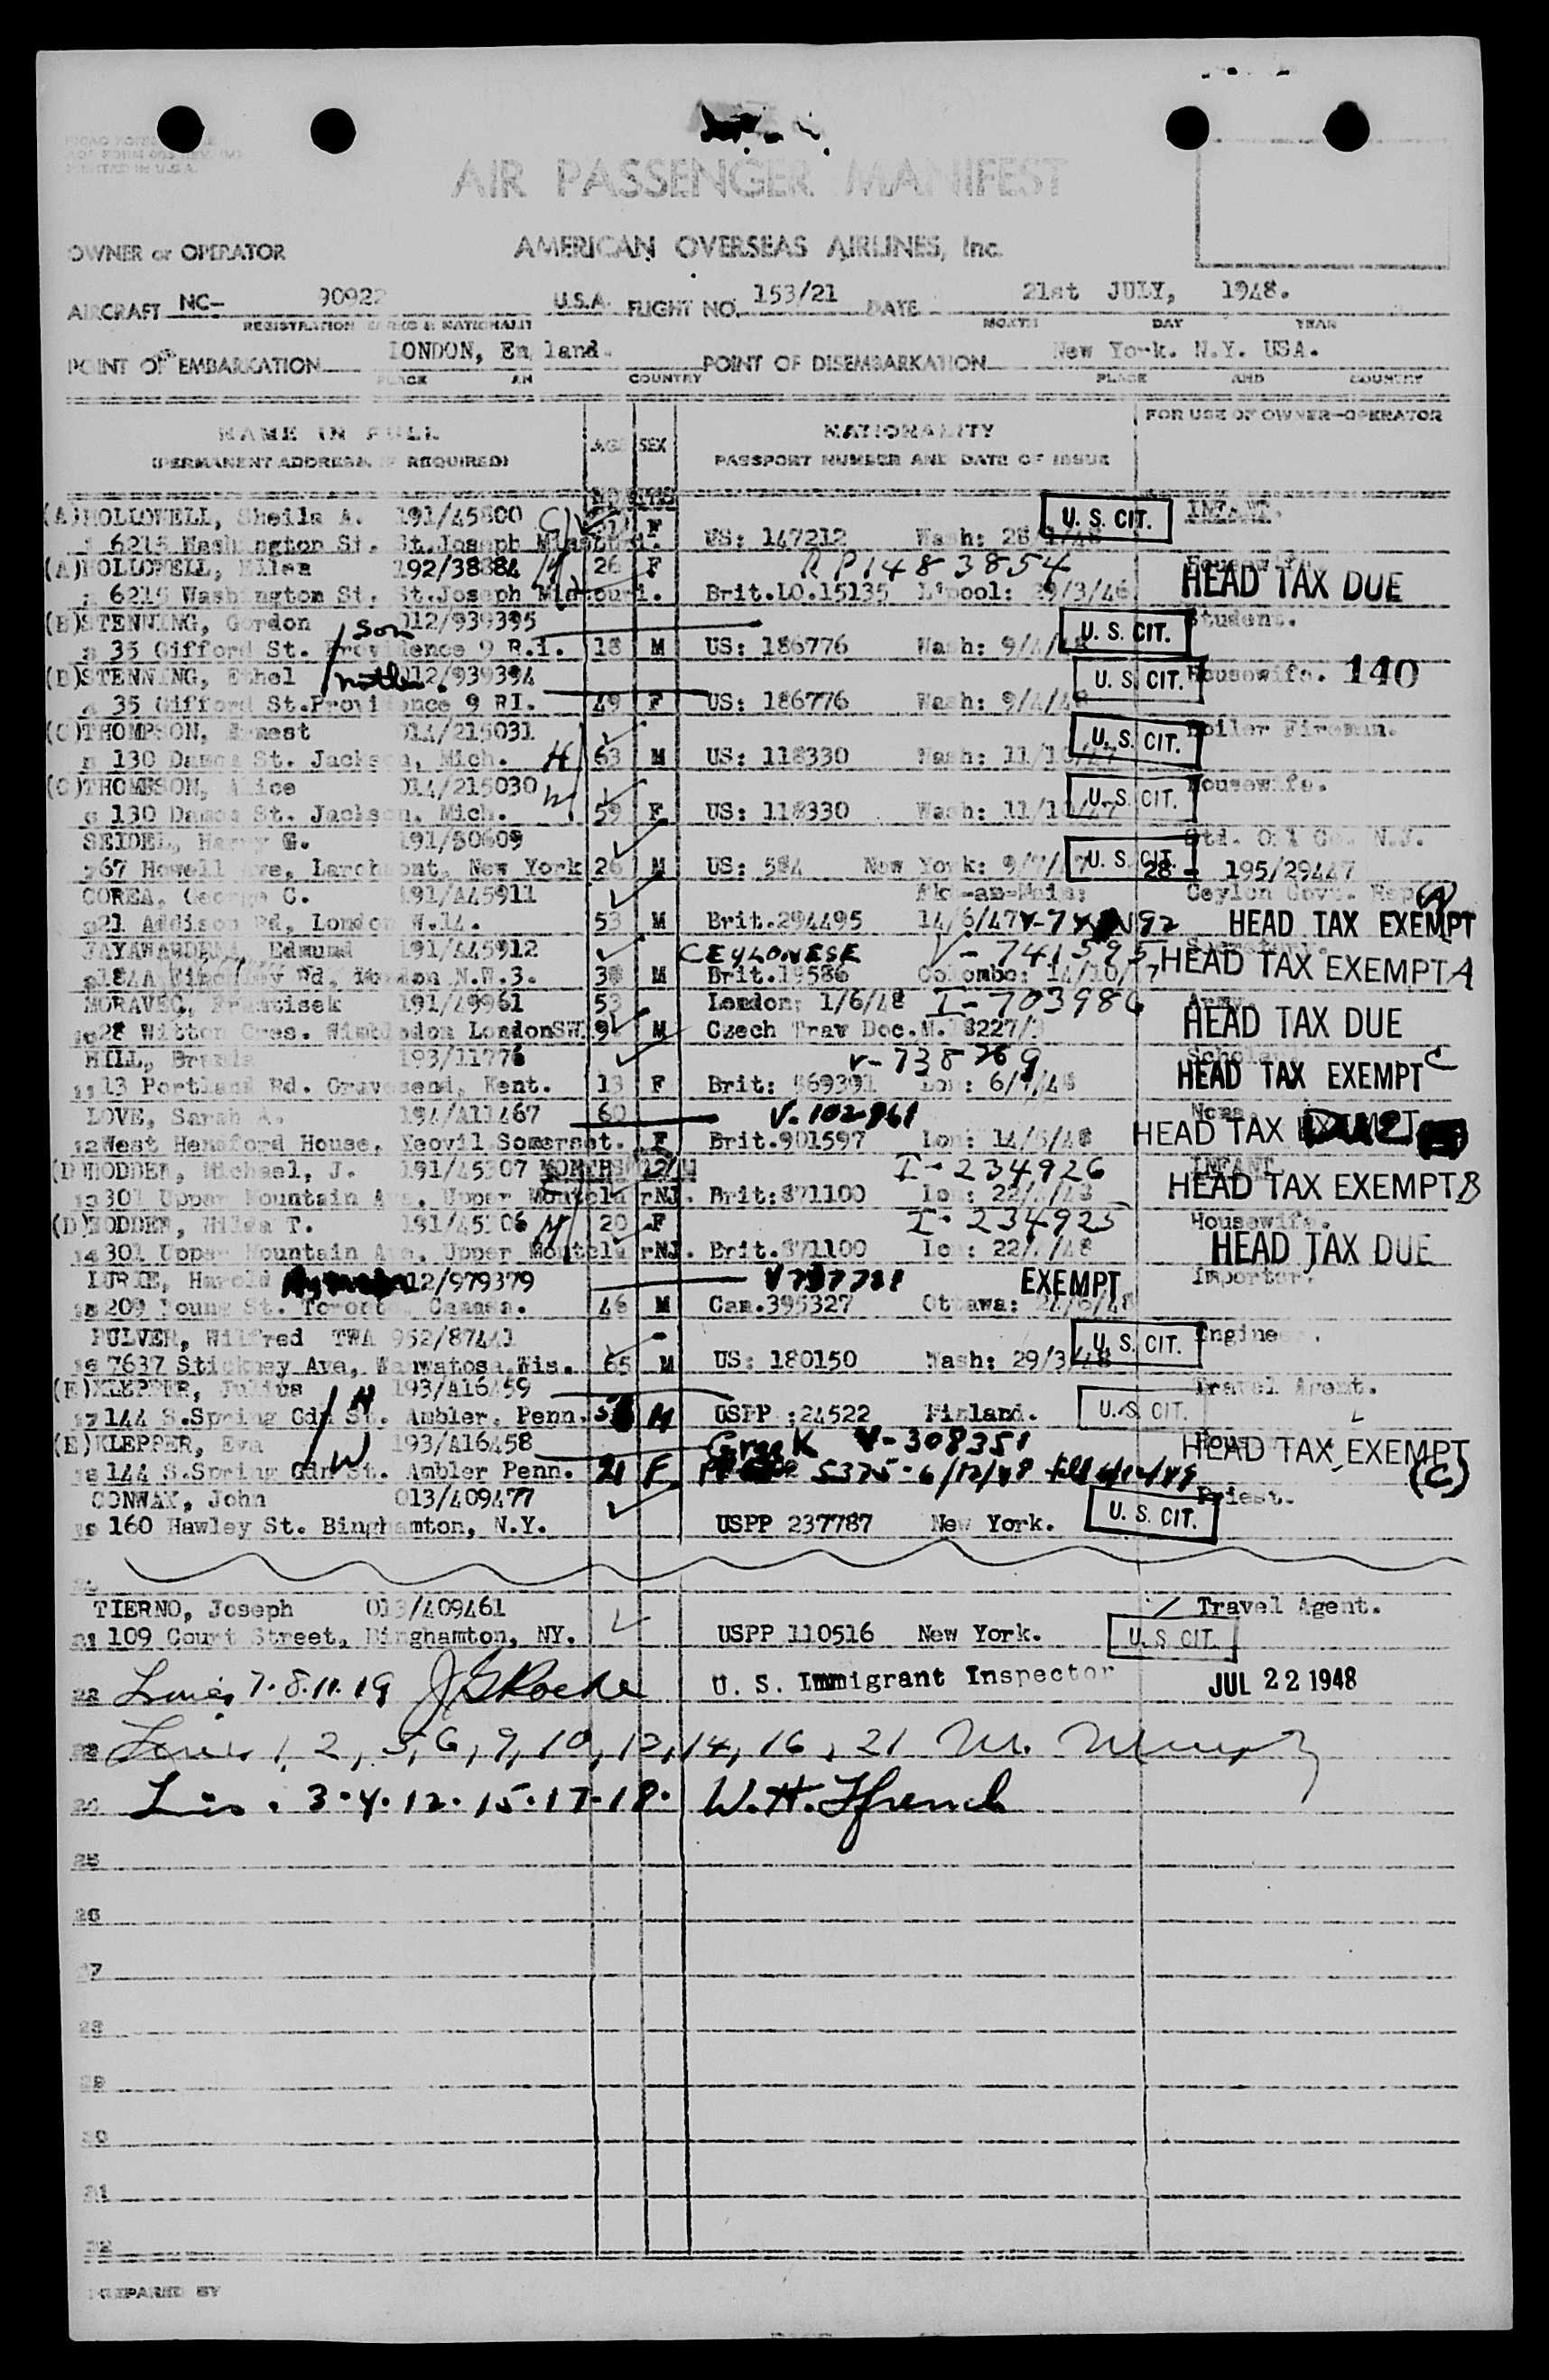 AIR PASSENGER MANIFEST
OWNER or OPERATOR AMERICAN OVERSEAS AIRLINES, Inc.
AIRCRAFT NC- 90922 U.S.A. FLIGHT NO. 153/21 DATE 21st JULY, 1948.
REGISTRATION MARKS & NATIONALITY MONTH DAY YEAR
POINT OF EMBARKATION LONDON, England. POINT OF DISEMBARKATION New York. N.Y. USA.
PLACE AND COUNTRY PLACE AND COUNTRY
NAME IN FULL AGE SEX NATIONALITY FOR USE OF OWNER-OPERATOR
(PERMANENT ADDRESS, IF REQUIRED) PASSPORT NUMBER AND DATE OF ISSUE
(A)HOLLOWELL, Sheila A. 191/45800 F U. S. CIT. INFANT.
6215 Washington St. St.Joseph US: 147212 Wash:
(A)HOLLOWELL, 192/38884 26 F RP1483854 Housewife.
6215 Washington St. St.Joseph Missouri. Brit.LO.15135 L'pool: 29/3/46 HEAD TAX DUE
(B)STENNING, Gordon son 012/939395 U. S. CIT. Student.
35 Gifford St. Providence 9 R.I. 18 M US: 186776 Wash: 9/4/48
(B)STENNING, Ethel mother. 012/939394 U. S. CIT. Housewife. 140
35 Gifford St.Providence 9 RI. 49 F US: 186776 Wash: 9/4/48
(C)THOMPSON, Ernest 014/215031 U. S. CIT. Boiler Fireman.
130 Damon St. Jackson, Mich. H 63 M US: 118330 Wash: 11/10/47
(C)THOMPSON, Alice 014/215030 W U. S. CIT. Housewife.
130 Damon St. Jackson, Mich. 59 F US: 118330 Wash: 11/10/47
SEIDEL, Harry G. 191/50609 Std. Oil Co. N.J.
67 Howell Ave, Larchmont, New York 26 M US: 584 New York: 9/7/47 U. S. CIT. 28 - 195/29447
COREA, George C. 191/A45911 Ceylon Govt. Rep. A
21 Addison Rd, London W.14. 53 M Brit.294495 14/6/47 HEAD TAX EXEMPT
JAYAWARDENA, Edmund 191/A45912 CEYLONESE V-741595 Secretary.
Rd, London N.W.3. 38 M Brit.19586 Colombo: 14/10/47 HEAD TAX EXEMPT A
MORAVEC, Frantisek 191/49961 53 London: 1/6/48 I-703986 Army.
28 Witton Cres. Wimbledon LondonSW 9 M Czech Trav Doc. HEAD TAX DUE
HILL, Brenda 193/11776 V-738269 Scholar.
13 Portland Rd. Gravesend, Kent. 13 F Brit: 569391 Lon: HEAD TAX EXEMPT C
LOVE, Sarah A. 194/A11467 60 V.102961 None.
12 West Hensford House, Yeovil Somerset. F Brit.901597 Lon: HEAD TAX DUE
(D)HODDER, Michael, J. 191/45107 MONTHS I-234926 INFANT.
13 301 Upper Mountain Ave, Upper Montclair NJ. Brit:871100 Lon: HEAD TAX EXEMPT B
(D)HODDER, 191/45106 M 20 F I-234925 Housewife.
14 301 Upper Mountain Ave, Upper Montclair NJ. Brit.871100 Lon: HEAD TAX DUE
LURIE, Harold 012/979379 EXEMPT Importer.
15 209 Young St. Toronto, Canada. 46 M Can.395327 Ottawa: 24/6/48
PULVER, Wilfred TWA 952/87441 Engineer.
16 7637 Stickney Ave, Wauwatosa,Wis. 65 M US: 180150 Wash: 29/3/48 U. S. CIT.
(E)KLEPPER, Julius H 193/A16459 Travel Agent.
17 144 S.Spring Gdn St. Ambler, Penn. M USPP :24522 Finland. U. S. CIT.
(E)KLEPPER, Eva W 193/A16458 Greek V-308351
18 144 S.Spring Gdn St. Ambler Penn. 21 F 5375-6/12/48 HEAD TAX EXEMPT (C)
CONWAY, John 013/409477 Priest.
160 Hawley St. Binghamton, N.Y. USPP 237787 New York. U. S. CIT.
TIERNO, Joseph 013/409461 Travel Agent.
21 109 Court Street, Binghamton, NY. USPP 110516 New York. U. S CIT.
22 Lines 7.8.11.19 J G Roche U. S. Immigrant Inspector JUL 22 1948
Lines 1, 2, 5, 6, 9, 10, 13, 14, 16, 21 M. Murphy
Lines . 3.4.12.15.17-18. W.H. Ffrench
25
26
27
28
29
30
31
32
PREPARED BY